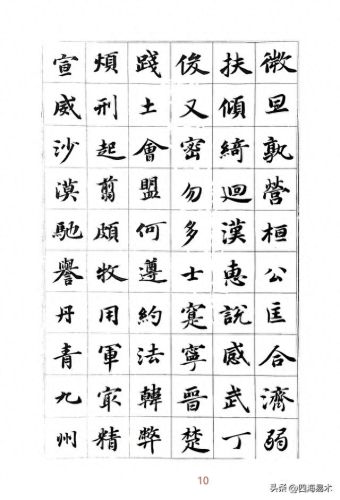 微旦孰營桓公匡合濟弱
扶傾綺迴漢惠說感武丁
俊又密勿多士寔寧晉楚
踐土會盟何遵約法韓弊
煩刑起翦頗牧用軍最精
宣威沙漠馳譽丹青九州
10
头条 @四海易木